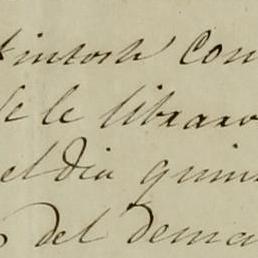 kintosh con
se le libraro
el dia quin
del dema